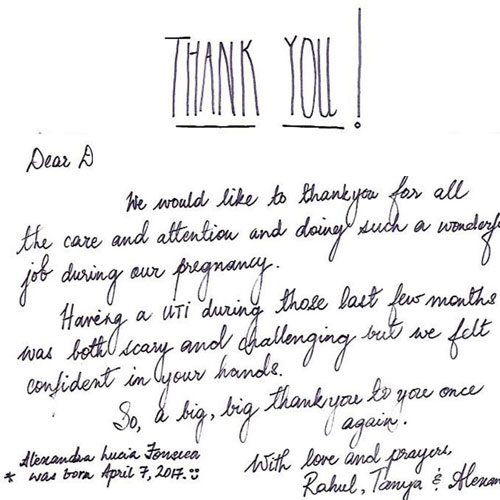 THANK YOU!
Dear D
We would like to thankyou for all
the care and attention and doing such a wonderfu
job during our pregnancy.
Having a UTI during those last few months
was both scary and challenging but we felt
confident in your hands.
So, a big, big thankyou to you once
again.
Alexandra Lucia Fonseca
* was born April 7, 2017.
With love and prayers,
Rahul, Tanya & Alexan